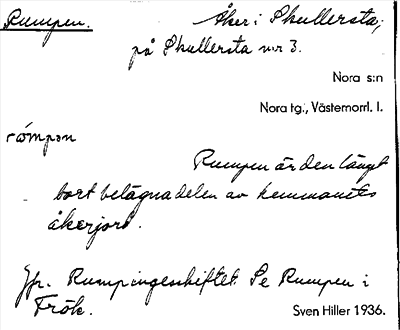 Rumpen. Åker i Skullersta,
på Skullersta nr 3.
Nora s:n
Nora tg., Västernorrl. l.
römpən
Rumpen är den längst
bort belägna delen av hemmanets
åkerjord.
Jfr. Rumpingeskiftet. Se Rumpen i
Frök.
Sven Hiller 1936.